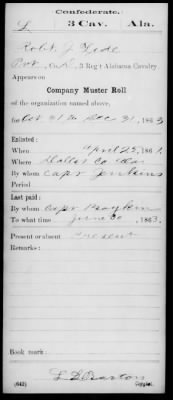 Confederate.
L 3 Cav. Ala.
Robt J
Pvt, Co. , 3 Reg't Alabama Cavalry
Appears on
Company Muster Roll
of the organization named above,
for Oct 31 to Dec 31, 1863
Enlisted:
When April 25, 1861.
Where Dallas Co Ala
By whom Capt Jenkins
Period
Last paid:
By whom Capt
To what time June 30 1863.
Present or absent Present
Remarks:
Book mark:
(642) Copyist.